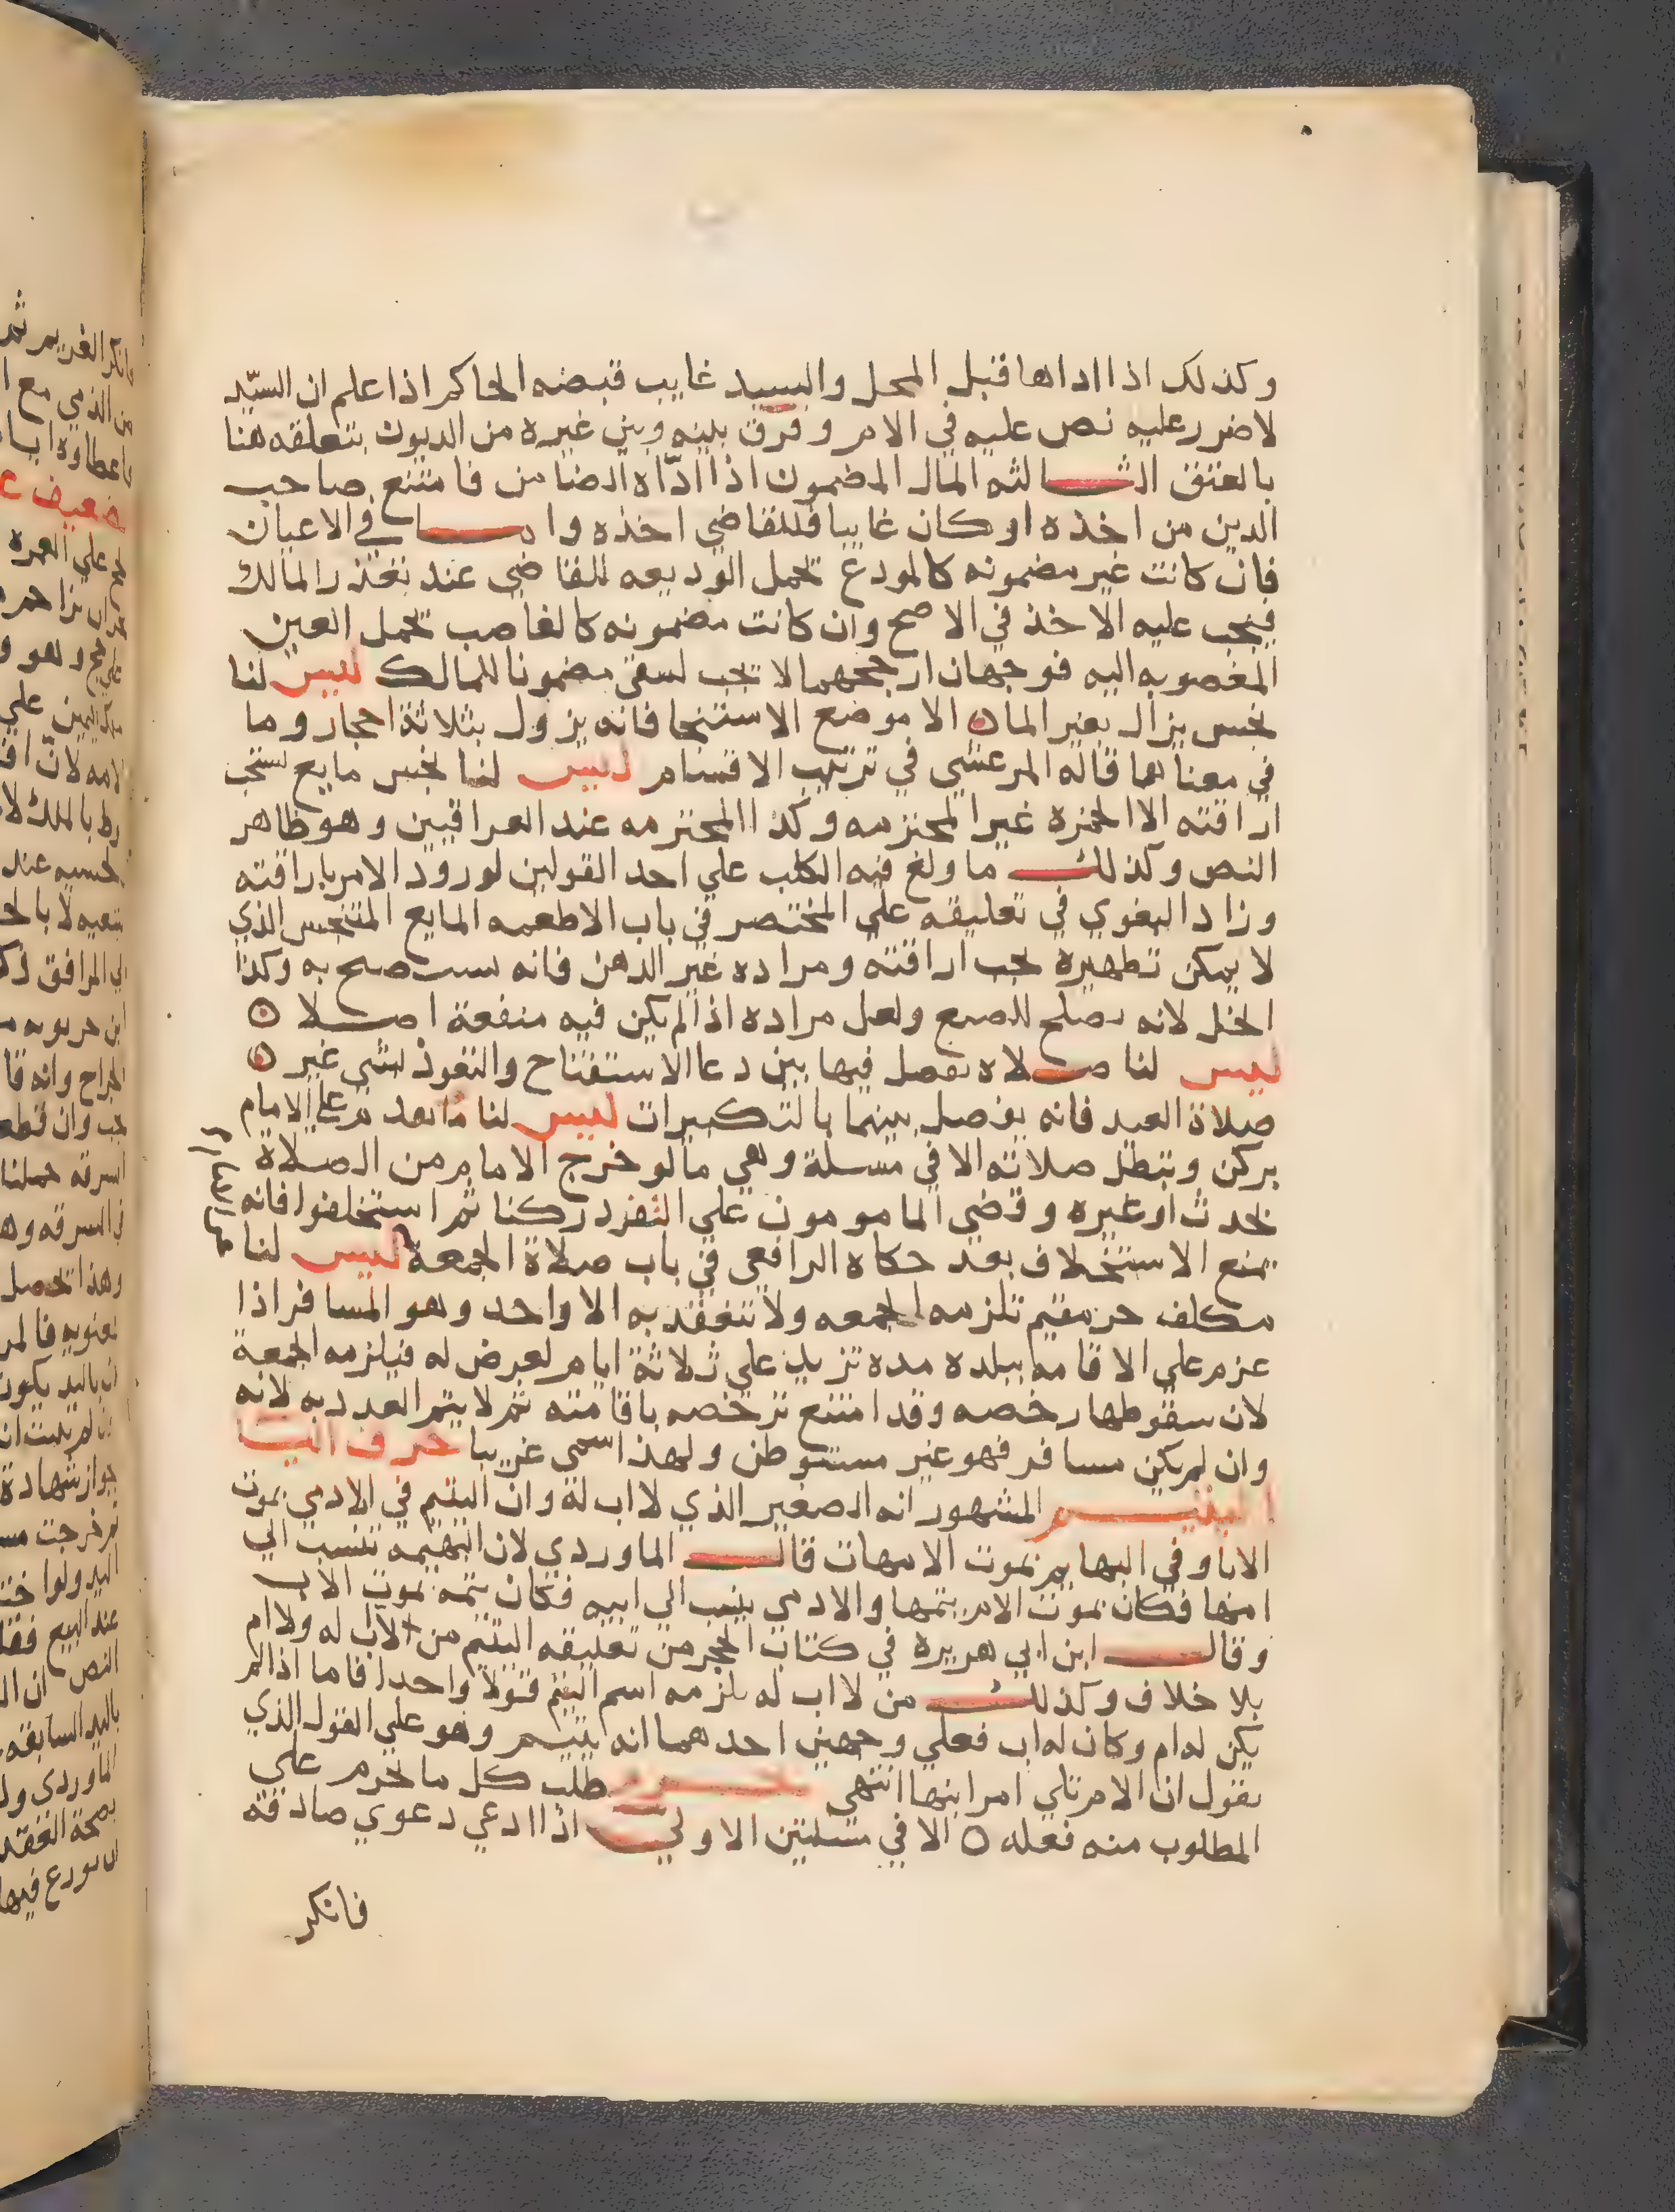 وكذلك اذا اداها قبل المحل والسيد غايب قبضه الحاكم اذا علم ان السيّد
لا ضرر عليه نص عليه في الام و فرق بينه وبين غيره من الديون بتعلقه هنا
بالعتق الثالثه المال المضمون اذا ادّاه الضامن فامتنع صاحب
الدين من اخذه او كان غايبا فللقاضي اخذه واما في الاعيان
فان كانت غير مضمونه كالمودع تحمل الوديعه للقاضي عند تعذر المالك
فيجب عليه الاخذ في الاصح وان كانت مضمونه كالغاصب تحمل العين
المغصوبه اليه فوجهان ارجحهما لا تجب لتبقى مضمونا للمالك ليس لنا
نجس يزال بغير الما ٥ الا موضع الاستنجا فانه يزول بثلاثة احجار وما
في معناها قاله المرعشي في ترتيب الاقسام ليس لنا نجس مايع تستحب
اراقته الا الخمره غير المحترمه وكذا المحترمه عند العراقيين وهو ظاهر
النص وكذلك ما ولغ فيه الكلب علي احد القولين لورود الامر باراقته
وزاد البغوي في تعليقه علي المختصر في باب الاطعمه المايع المتنجس الذي
لا يمكن تطهيره تجب اراقته ومراده غير الدهن فانه يستصبح به وكذا
الخل لانه يصلح للصبع ولعل مراده اذا لم يكن فيه منفعة اصلا ٥
ليس لنا صلاه يفصل فيها بين دعا الاستفتاح والتعوذ بشي غير ٥
صلاة العيد فانه يفصل بينهما بالتكبيرات ليس لنا ما بعد تم علي الامام
بركن وتبطل صلاته الا في مسلة وهي ما لو خرج الامام من الصلاة
بحدث او غيره وقضي المامومون علي التفرد ركنا ثم استخلفوا فانه
يمنع الاستخلاف بعد حكاه الرافعي في باب صلاة الجمعة ليس لنا
مكلف حر مقيم تلزمه الجمعه ولا تنعقد به الا واحد وهو المسافر اذا
عزم علي الاقامه ببلده مده تزيد علي ثلاثة ايام لعرض له فيلزمه الجمعة
لان سقوطها رخصه وقد امتنع ترخصه باقامته ثم لا يتم العدد به لانه
وان لم يكن مسافر فهو غير مستوطن ولهذا سمى غريبا حرف اليا
اليتيم المشهور انه الصغير الذي لا اب له وان اليتيم في الادمي بموت
الابا وفي البهايم بموت الامهات قال الماوردي لان البهيمه تنسب الي
امها فكان بموت الام يتمها والادمي ينسب الي ابيه فكان يتمه بموت الاب
وقال ابن ابي هريره في كتاب الحجر من تعليقه اليتيم من لا اب له ولا ام
بلا خلاف وكذلك من لا اب له يلزمه اسم اليتم قولا واحدا فاما اذا لم
يكن له ام وكان له اب فعلي وجهين احدهما انه يتيم وهو علي القول الذي
يقول ان الام تلي امر ابنها انتهى يحرم طلب كل ما يحرم علي
المطلوب منه فعله ٥ الا في مسلتين الاولي اذا ادعي دعوي صادقة
فانكر